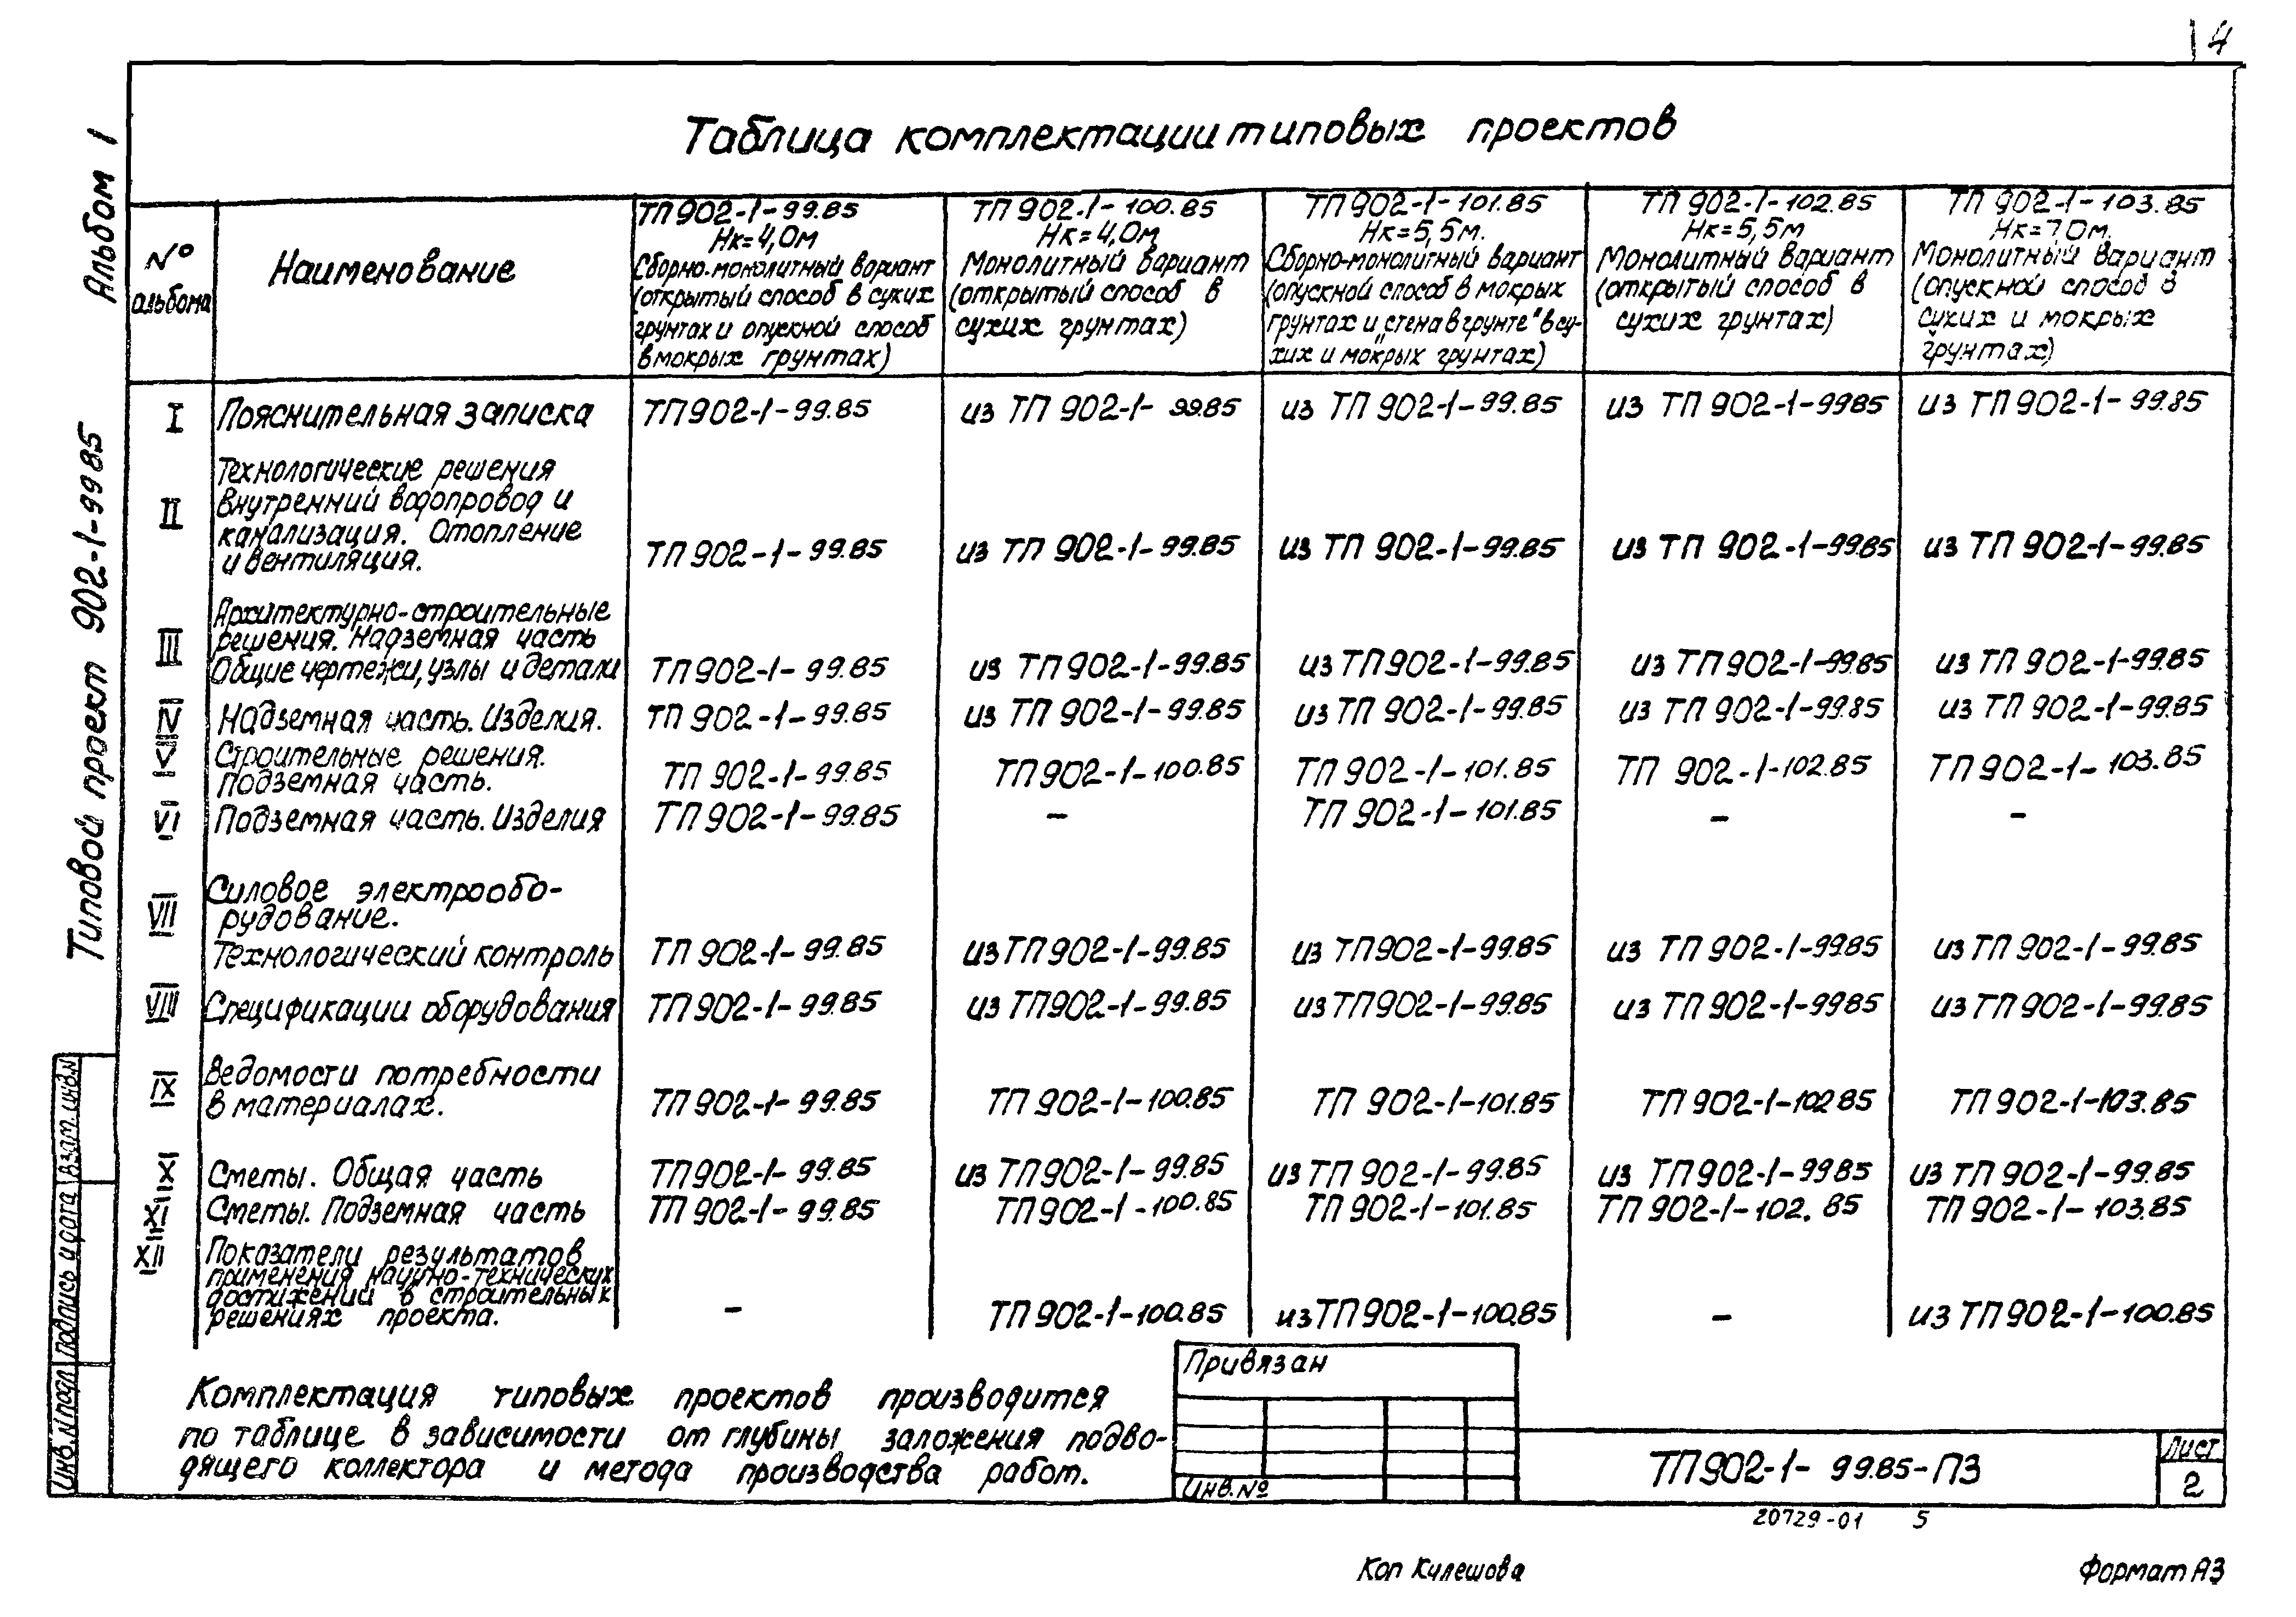 4
Альбом I
Типовой проект 902-1-99 85
Таблица комплектации типовых проектов
№ альбома
Наименование
ТП 902-1-99.85
Нк=4,0м
Сборно-монолитный вариант
(открытый способ в сухих
грунтах и опускной способ
в мокрых грунтах)
ТП 902-1-100.85
Нк=4,0м
Монолитный вариант
(открытый способ в
сухих грунтах)
ТП 902-1-101.85
Нк=5,5м.
Сборно-монолитный вариант
(опускной способ в мокрых
грунтах и „стена в грунте" в су-
хих и мокрых грунтах)
ТП 902-1-102.85
Нк=5,5м
Монолитный вариант
(открытый способ в
сухих грунтах)
ТП 902-1-103.85
Нк=7.0м.
Монолитный вариант
(опускной способ в
сухих и мокрых
грунтах)
I Пояснительная записка ТП 902-1-99.85 из ТП 902-1-99.85 из ТП 902-1-99.85 из ТП 902-1-9985 из ТП 902-1-99.85
II Технологические решения
Внутренний водопровод и
канализация. Отопление
и вентиляция. ТП 902-1-99.85 из ТП 902-1-99.85 из ТП 902-1-99.85 из ТП 902-1-99.85 из ТП 902-1-99.85
III Архитектурно-строительные
решения. Надземная часть
Общие чертежи, узлы и детали ТП 902-1-99.85 из ТП 902-1-99.85 из ТП 902-1-99.85 из ТП 902-1-99.85 из ТП 902-1-99.85
IV Надземная часть. Изделия. ТП 902-1-99.85 из ТП 902-1-99.85 из ТП 902-1-99.85 из ТП 902-1-99.85 из ТП 902-1-99.85
V Строительные решения.
Подземная часть. ТП 902-1-99.85 ТП 902-1-100.85 ТП 902-1-101.85 ТП 902-1-102.85 ТП 902-1-103.85
VI Подземная часть. Изделия ТП 902-1-99.85 – ТП 902-1-101.85 – –
VII Силовое электрообо-
рудование.
Технологический контроль ТП 902-1-99.85 из ТП 902-1-99.85 из ТП 902-1-99.85 из ТП 902-1-9985 из ТП 902-1-99.85
VIII Спецификации оборудования ТП 902-1-99.85 из ТП 902-1-99.85 из ТП 902-1-99.85 из ТП 902-1-9985 из ТП 902-1-99.85
IX Ведомости потребности
в материалах. ТП 902-1-99.85 ТП 902-1-100.85 ТП 902-1-101.85 ТП 902-1-102 85 ТП 902-1-103.85
X Сметы. Общая часть ТП 902-1-99.85 из ТП 902-1-99.85 из ТП 902-1-99.85 из ТП 902-1-9985 из ТП 902-1-99.85
XI Сметы. Подземная часть ТП 902-1-99.85 ТП 902-1-100.85 ТП 902-1-101.85 ТП 902-1-102.85 ТП 902-1-103.85
XII Показатели результатов
применения научно-технических
достижений в строительных
решениях проекта. – ТП 902-1-100.85 из ТП 902-1-100.85 – из ТП 902-1-100.85
Комплектация типовых проектов производится
по таблице в зависимости от глубины заложения подво-
дящего коллектора и метода производства работ.
Привязан
Инв. №
ТП 902-1-99.85-ПЗ
Лист
2
Инв. № подл Подпись и дата Взам. инв. №
20729-01 5
Коп Кулешова
Формат А3